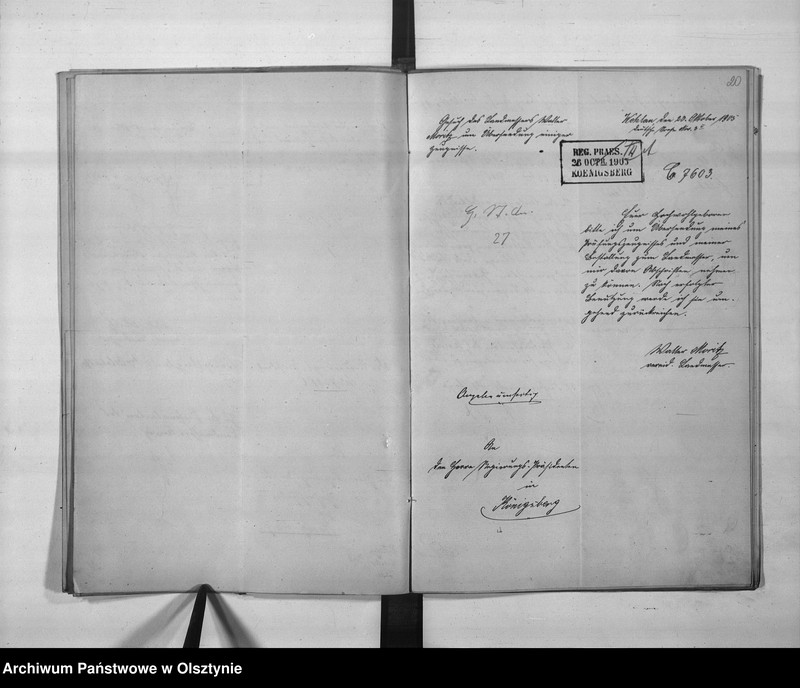 20
Gesuch des Landmessers Walter
Moritz um Übersendung einiger
Zeugnisse.
den 23. Oktober 1905
REG. PRAES.
26 OCTR. 1905
KOENIGSBERG
C 7603.
27
Euer Hochwohlgeboren
bitte ich um Übersendung meines
Prüfungszeugnisses und meiner
Bestallung zum Landmesser, um
mir davon Abschriften nehmen
zu können. Nach erfolgter
Benutzung werde ich sie um-
gehend zurückreichen.
Walter Moritz
vereid. Landmesser.
An
den Herrn Regierungs-Präsidenten
in
Königsberg
Archiwum Państwowe w Olsztynie